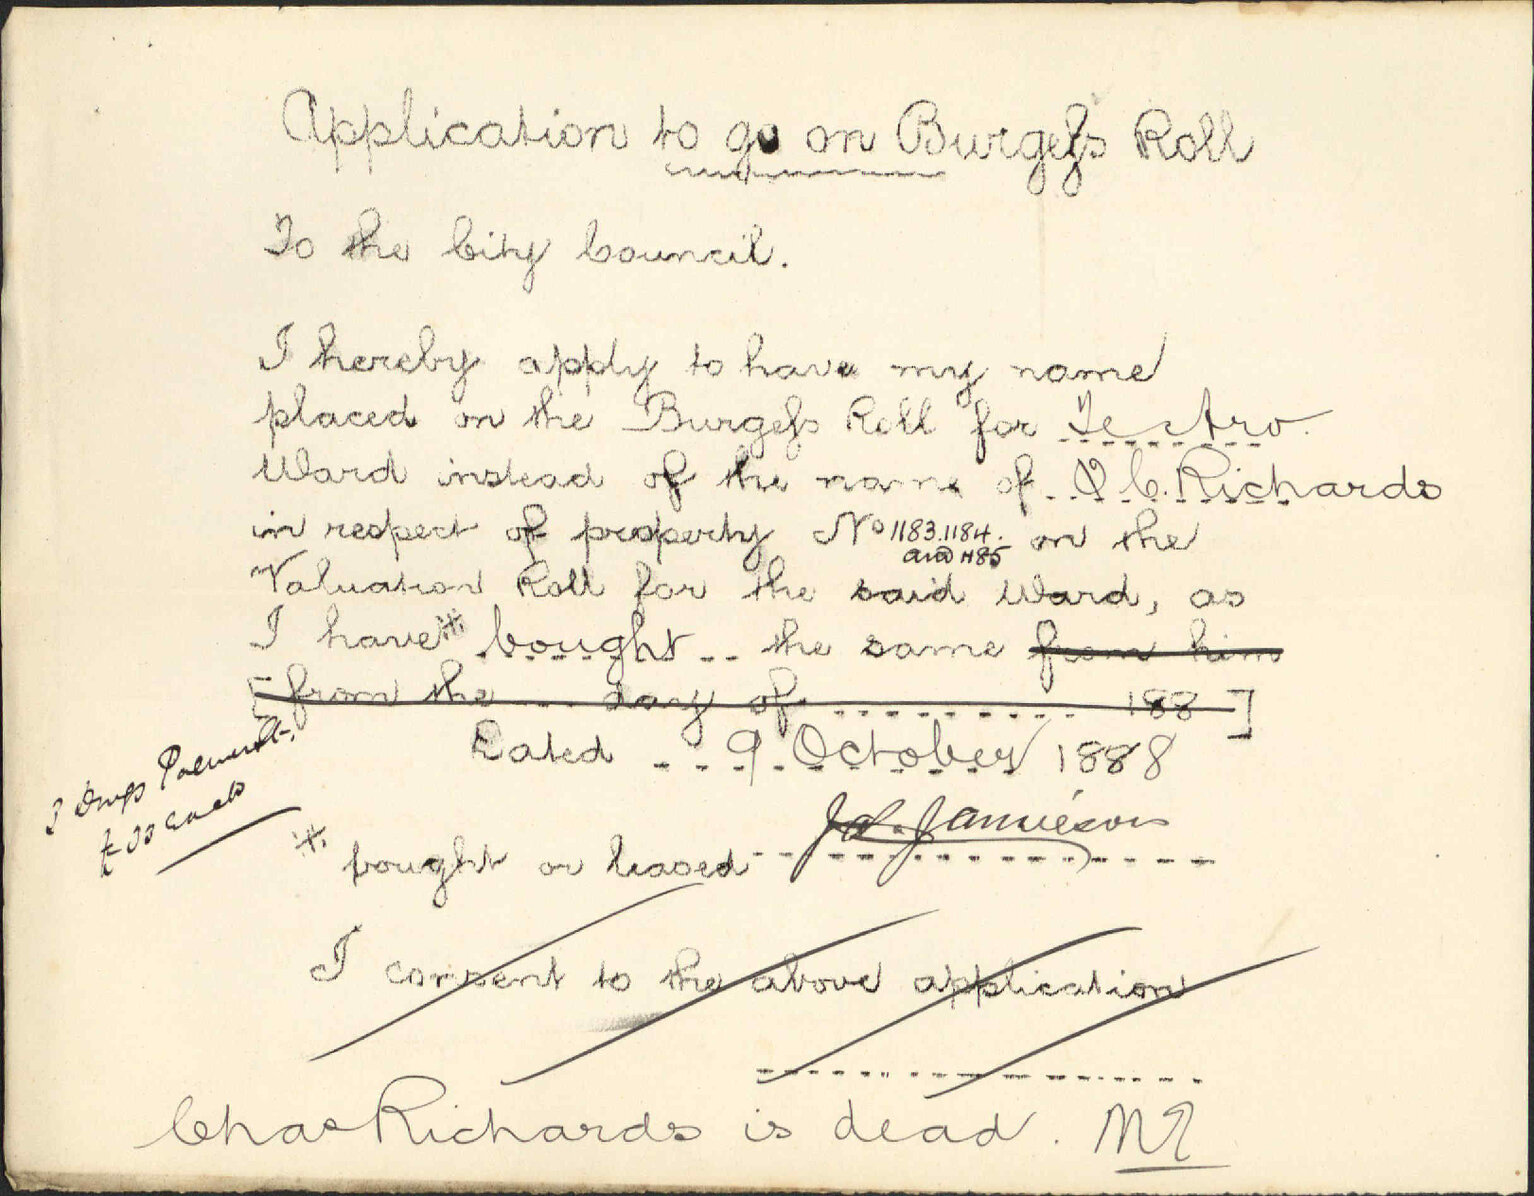 Application to go on Burgess Roll
To the City Council.
I hereby apply to have my name
placed on the Burgess Roll for Te Aro
Ward instead of the name of C. Richards
in respect of property No 1183.1184.
and 1185
on the
Valuation Roll for the said Ward, as
I have * bought the same from him
[from the day of 188 ]
Dated 9 October 1888
Jamieson
* bought or leased
I consent to the above application
Chas Richards is dead.